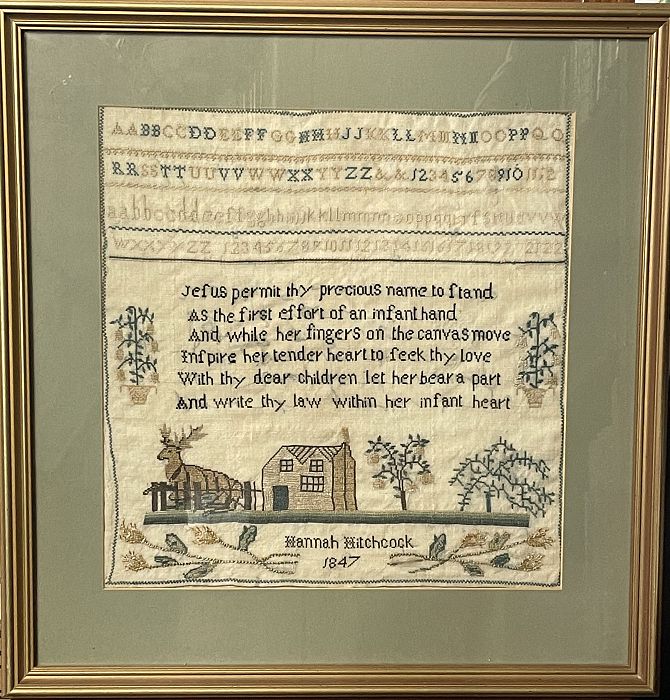 AABBCCDDEEFFGGHHIJJKKLLMMNNOOPPQQ
RRSSTTUUVVWWXXYYZZ&&12345678910112
aabbccddeeffgghhiijkkllmmnnooppqqrrssttuuvvw
WXXXYYZZ 123456789101112131415161718192 2122
Jeſus permit thy precious name to ſtand
As the first effort of an infant hand
And while her fingers on the canvas move
Inſpire her tender heart to ſeek thy love
With thy dear children let her bear a part
And write thy law within her infant heart
Hannah Hitchcock
1847